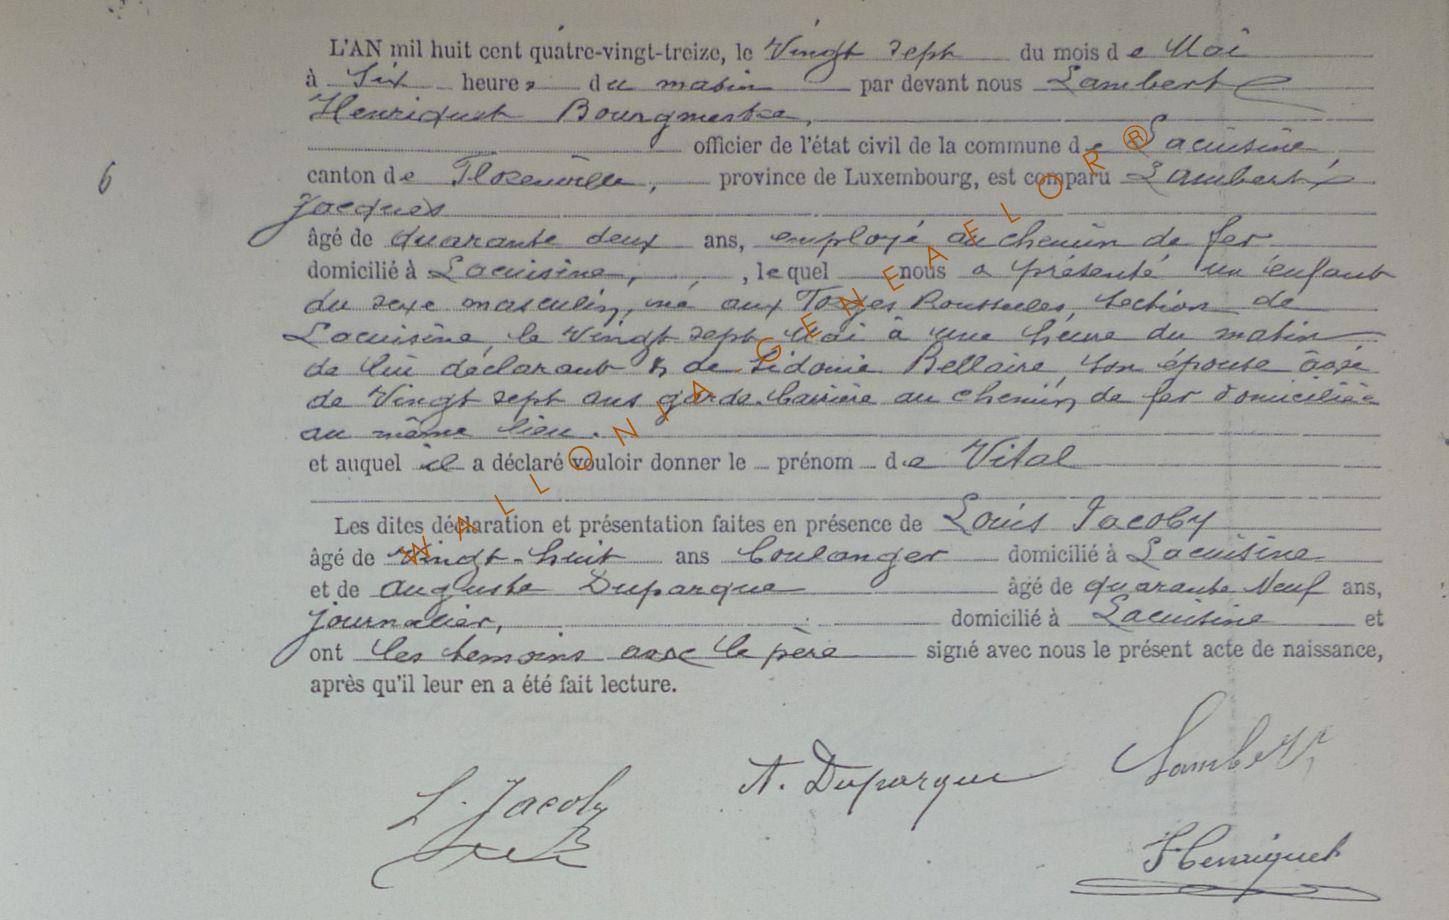 L'AN mil huit cent quatre-vingt-treize, le Vingt sept du mois de Mai
à Six heures du matin par devant nous Lambert
Henriquet Bourgmestre,
officier de l'état civil de la commune de Lacuisine,
canton de Florenville, province de Luxembourg, est comparu Lambert
Jacques
âgé de quarante deux ans, employé au chemin de fer
domicilié à Lacuisine, , lequel nous a présenté un enfant
du sexe masculin, né aux Forges Rousselles, section de
Lacuisine, le vingt sept Mai à une heure du matin
de lui déclarant & de Sidonie Bellaire, son épouse âgée
de Vingt sept ans garde-barrière au chemin de fer domiciliée
au même lieu.
et auquel il a déclaré vouloir donner le prénom de Vital
Les dites déclaration et présentation faites en présence de Louis Jacoby
âgé de vingt-huit ans boulanger domicilié à Lacuisine
et de Auguste Duparque âgé de quarante Neuf ans,
journalier, domicilié à Lacuisine et
ont les temoins avec le père signé avec nous le présent acte de naissance,
après qu'il leur en a été fait lecture.
6
WALLONIA.GENEAELOR®
A. Duparque Lambert
L. Jacoby
Henriquet